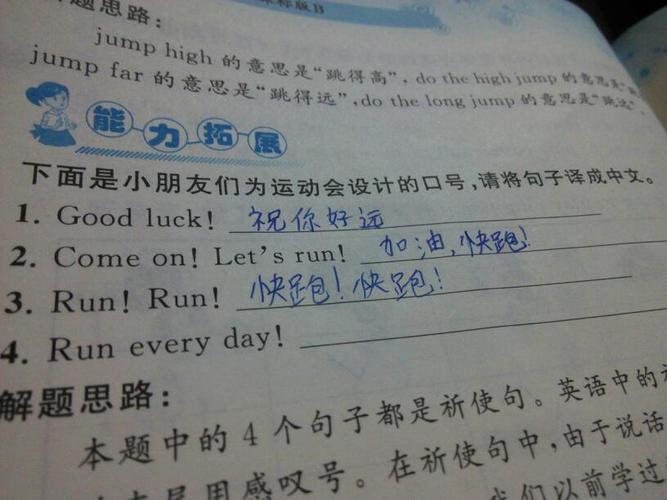 题思路：
jump high 的意思是“跳得高”，do the high jump 的意思是“
jump far 的意思是“跳得远”，do the long jump 的意思是“跳远”
能力拓展
下面是小朋友们为运动会设计的口号，请将句子译成中文。
1. Good luck! 祝你好远
2. Come on! Let's run! 加油，快跑！
3. Run! Run! 快跑！快跑！
4. Run every day!
解题思路：
本题中的 4 个句子都是祈使句。英语中的
用感叹号。在祈使句中，由于说话
们以前学过